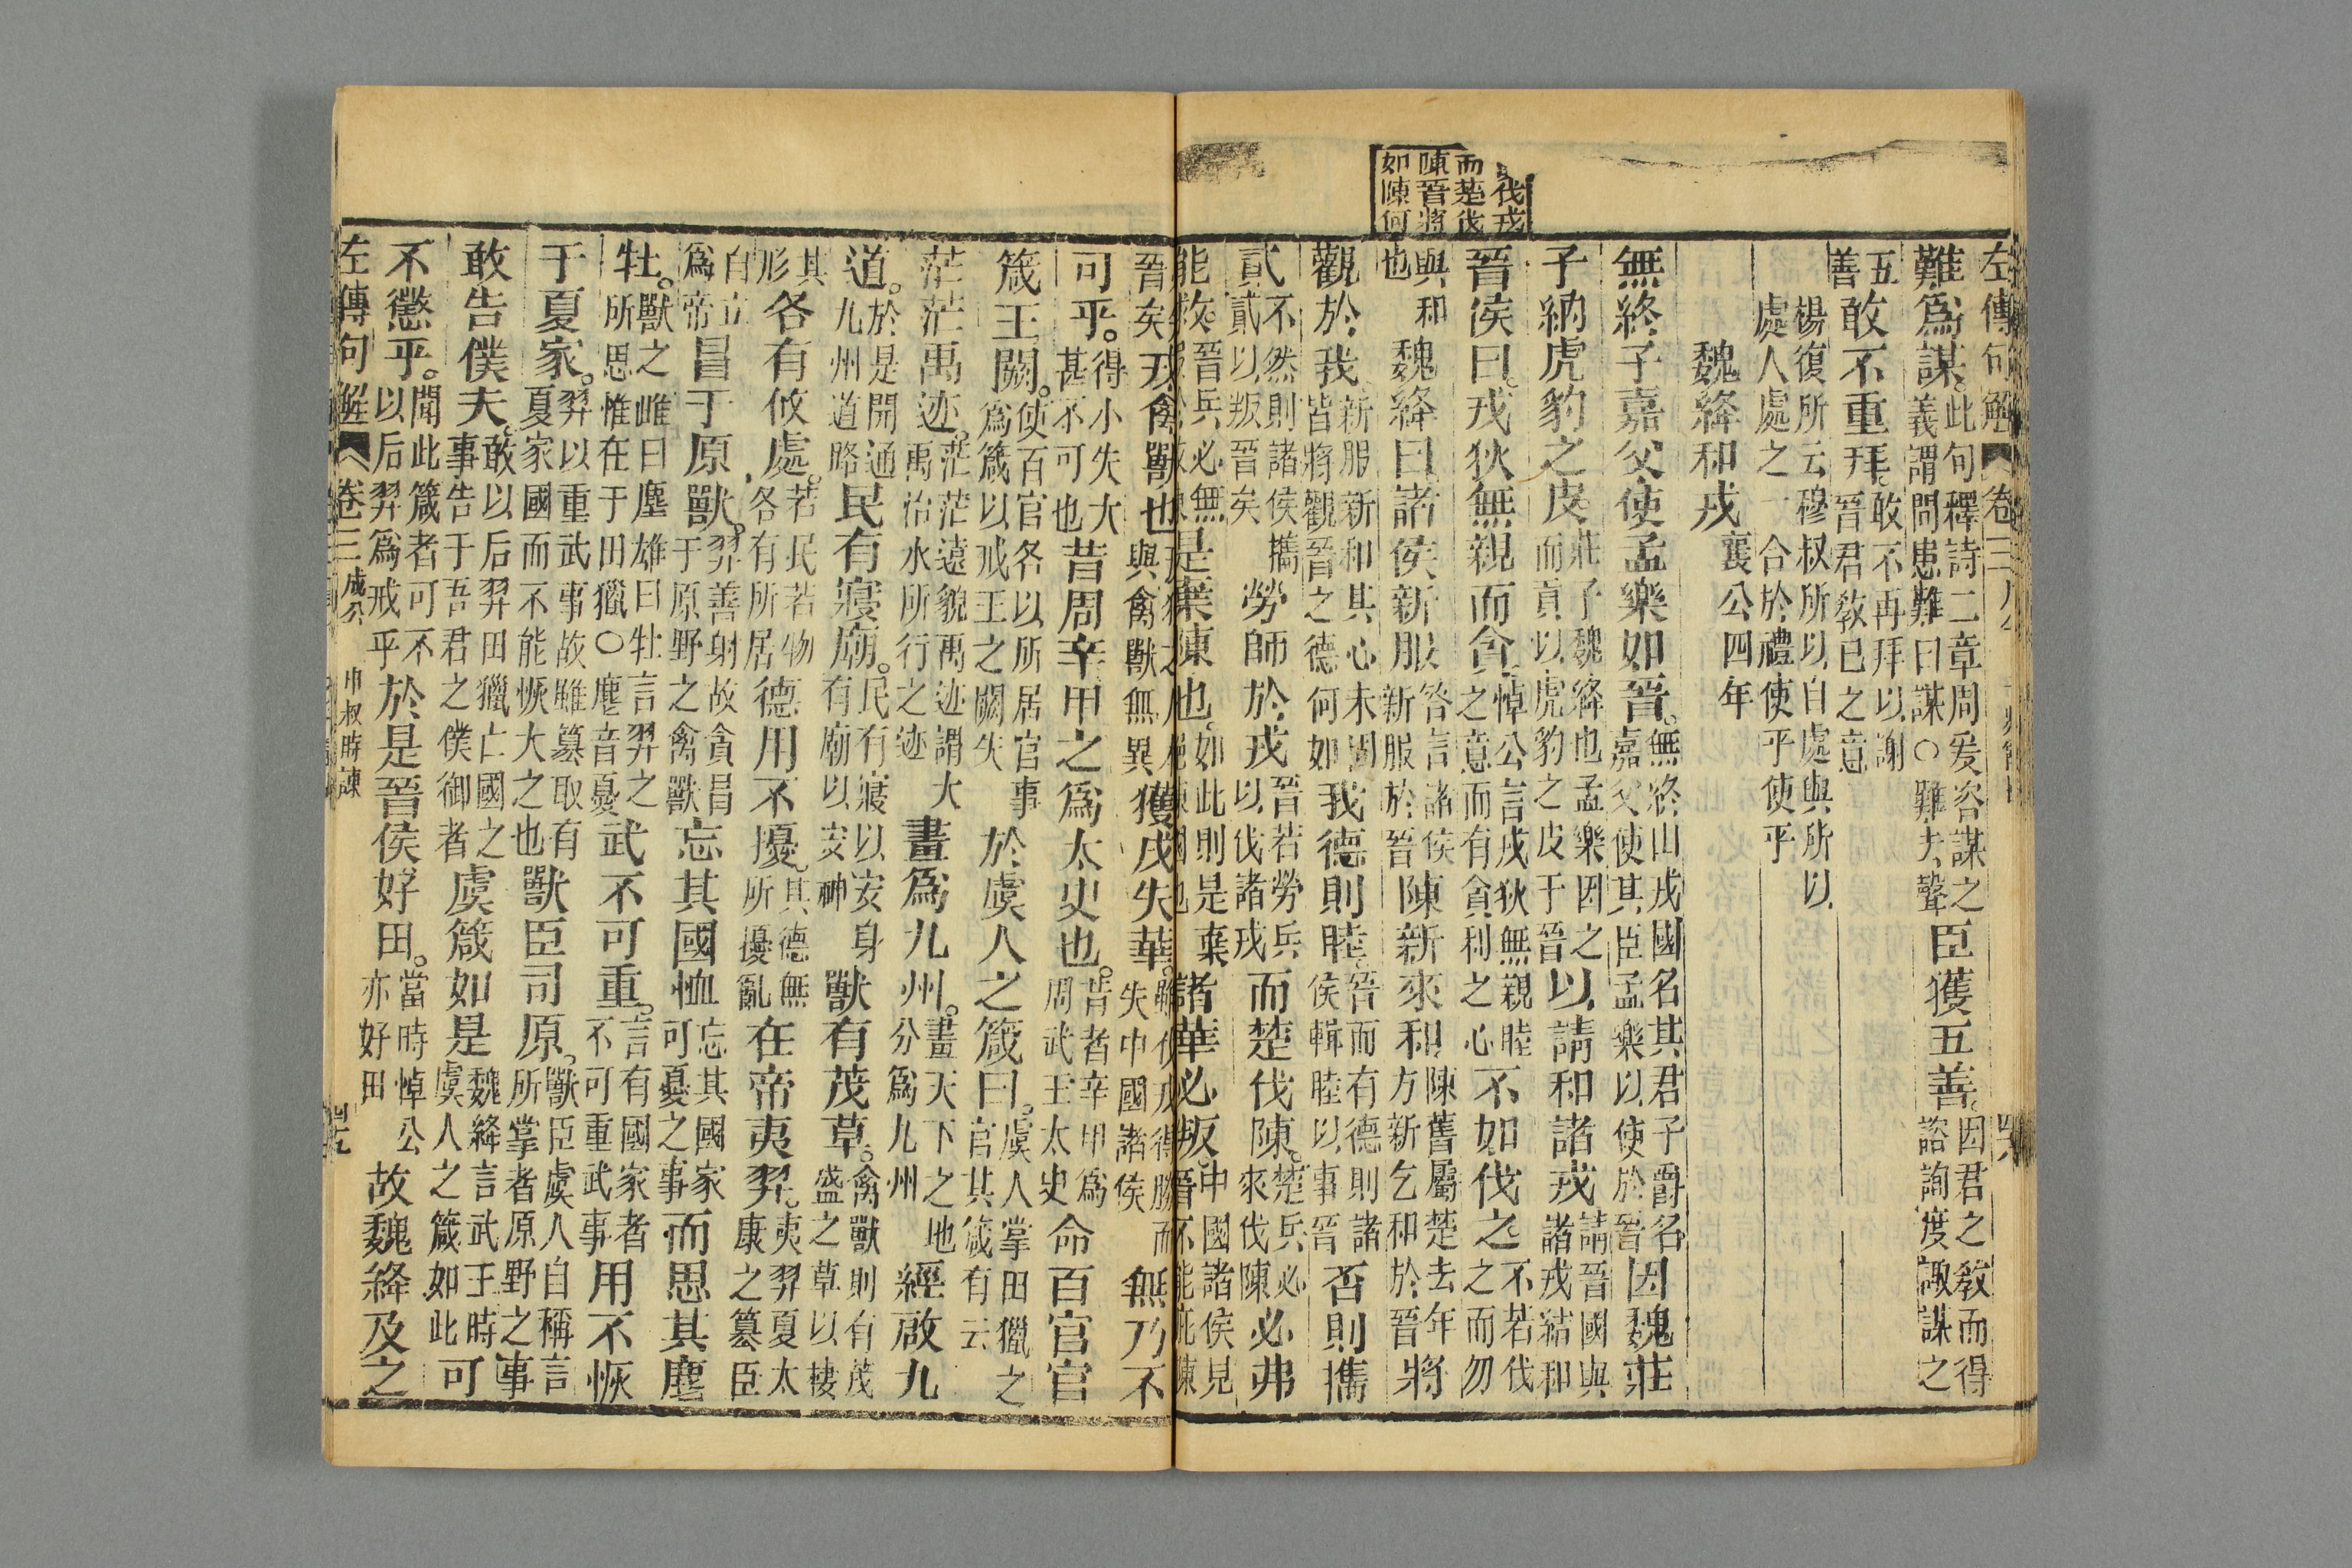 伐戎
而楚伐
陳晉將
如陳何
左傳句解 卷三
難爲謀。此句釋詩二章周爰咨謀之義謂問患難曰謀○難去聲臣獲五善。因君之教而得諮詢度諏謀之
五善敢不重拜。敢不再拜以謝晉君教己之意
楊復所云穆叔所以自處與所以
處人處之一合於禮使乎使乎
魏絳和戎 襄公四年
無終子嘉父使孟樂如晉。無終山戎國名其君子爵名嘉父使其臣孟樂以使於晉因魏莊
子納虎豹之皮。莊子魏絳也孟樂因之而貢以虎豹之皮于晉以請和諸戎請晉國與諸戎結和
晉侯曰。戎狄無親而貪。悼公言戎狄無親睦之意而有貪利之心不如伐之不若伐之而勿
與和也魏絳曰諸侯新服答言諸侯新服於晉陳新來和陳舊屬楚去年方新乞和於晉將
觀於我。新服新和其心未固皆將觀晉之德何如我德則睦。晉而有德則諸侯輯睦以事晉否則攜
貳不然則諸侯攜貳以叛晉矣勞師於戎晉若勞兵以伐諸戎而楚伐陳。楚兵必來伐陳必弗
能救晉兵必無是棄陳也。如此則是棄諸華必叛。中國諸侯見晉不能庇陳
晉矣戎禽獸也與禽獸無異獲戎失華。雖伐戎得勝而失中國諸侯無乃不
可乎。得小失大甚不可也昔周辛甲之爲太史也。昔者辛甲爲周武王太史命百官官
箴王闕。使百官各以所居官事爲箴以戒王之闕失於虞人之箴曰。虞人掌田獵之官其箴有云
茫茫禹迹。茫茫遠貌禹迹謂大禹治水所行之迹畫爲九州。畫天下之地分爲九州經啟九
道。於是開通九州道路民有寢廟。民有寢以安身有廟以安神獸有茂草。禽獸則有茂盛之草以棲
其形各有攸處。若民若物各有所居德用不擾。其德無所擾亂在帝夷羿。夷羿夏太康之篡臣
自立爲帝冒于原獸。羿善射故貪冒于原野之禽獸忘其國恤忘其國家可憂之事而思其麀
牡。獸之雌曰麀雄曰牡言羿之所思惟在于田獵○麀音憂武不可重。言有國家者不可重武事用不恢
于夏家。羿以重武事故雖篡取有夏家國而不能恢大之也獸臣司原。獸臣虞人自稱言所掌者原野之事
敢告僕夫。敢以后羿田獵亡國之事告于吾君之僕御者虞箴如是魏絳言武王時虞人之箴如此可
不懲乎。聞此箴者可不以后羿爲戒乎於是晉侯好田。當時悼公亦好田故魏絳及之
左傳句解 卷三 成公 申叔時諫 四九